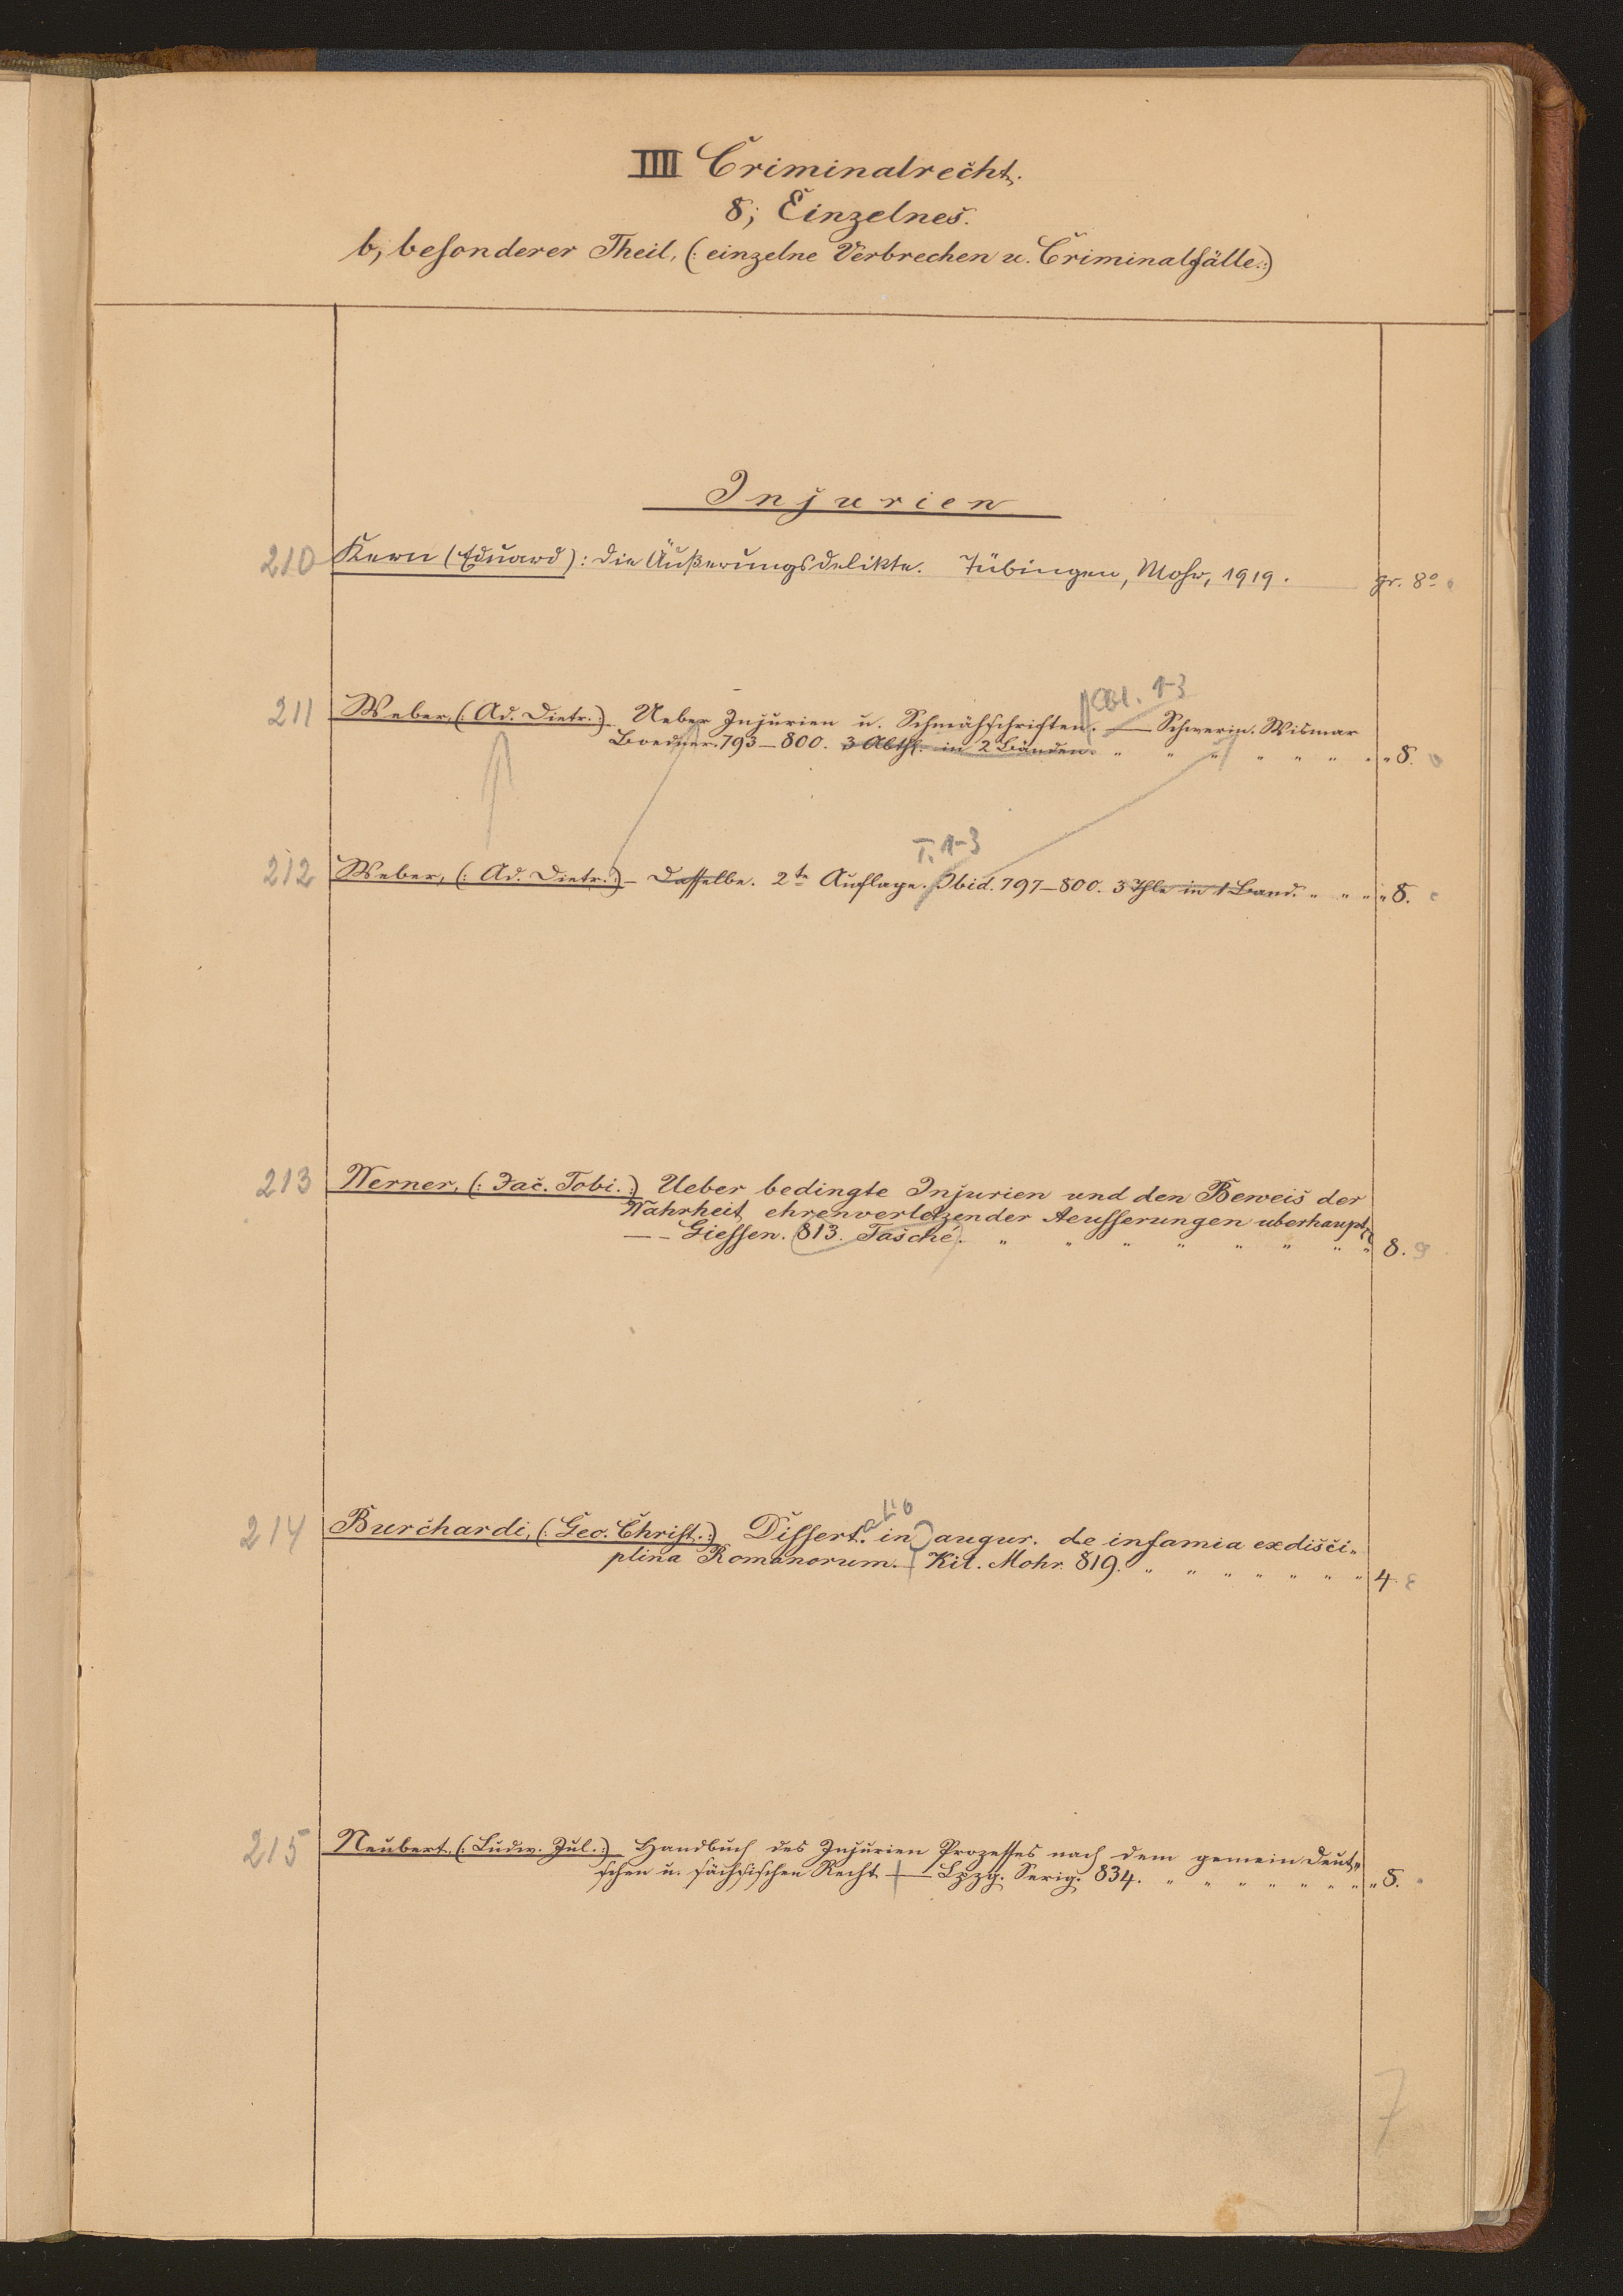 IIII Criminalrecht.
8; Einzelnes.
b, besonderer Theil, (: einzelne Verbrechen u. Criminalfälle :)
Injurien
210 Kern (Eduard): Die Äußerungsdelikte. Tübingen, Mohr, 1919. gr. 8°
Abt. 1-3
211 Weber, (: Ad. Dietr. :) Ueber Injurien u. Schmähschriften. — Schwerin. Wismar
Boedner. 793–800. 3 Abth. in 2 Bänden. " " " " " " " " 8.
T. 1-3
212 Weber, (: Ad. Dietr. :) – Dasselbe. 2te Auflage. Ibid. 797–800. 3 Thle in 1 Band. " " " " 8.
213 Werner, (: Jac. Tobi. :) Ueber bedingte Injurien und den Beweis der
Wahrheit ehrenverletzender Aeusserungen uberhaupt,
–– Giessen. 813. Tasche. " " " " " " " " 8.
atio
214 Burchardi, (: Geo. Christ. :) Dissert. in augur. de infamia exdisci„
plina Romanorum. – Kil. Mohr. 819. " " " " " " " 4.
215 Neubert, (: Ludw. Jul. :) Handbuch des Injurien Prozesses nach dem gemein Deut„
schen u. sächsischen Recht — Lpzg. Serig. 834. " " " " " " " " 8.
7